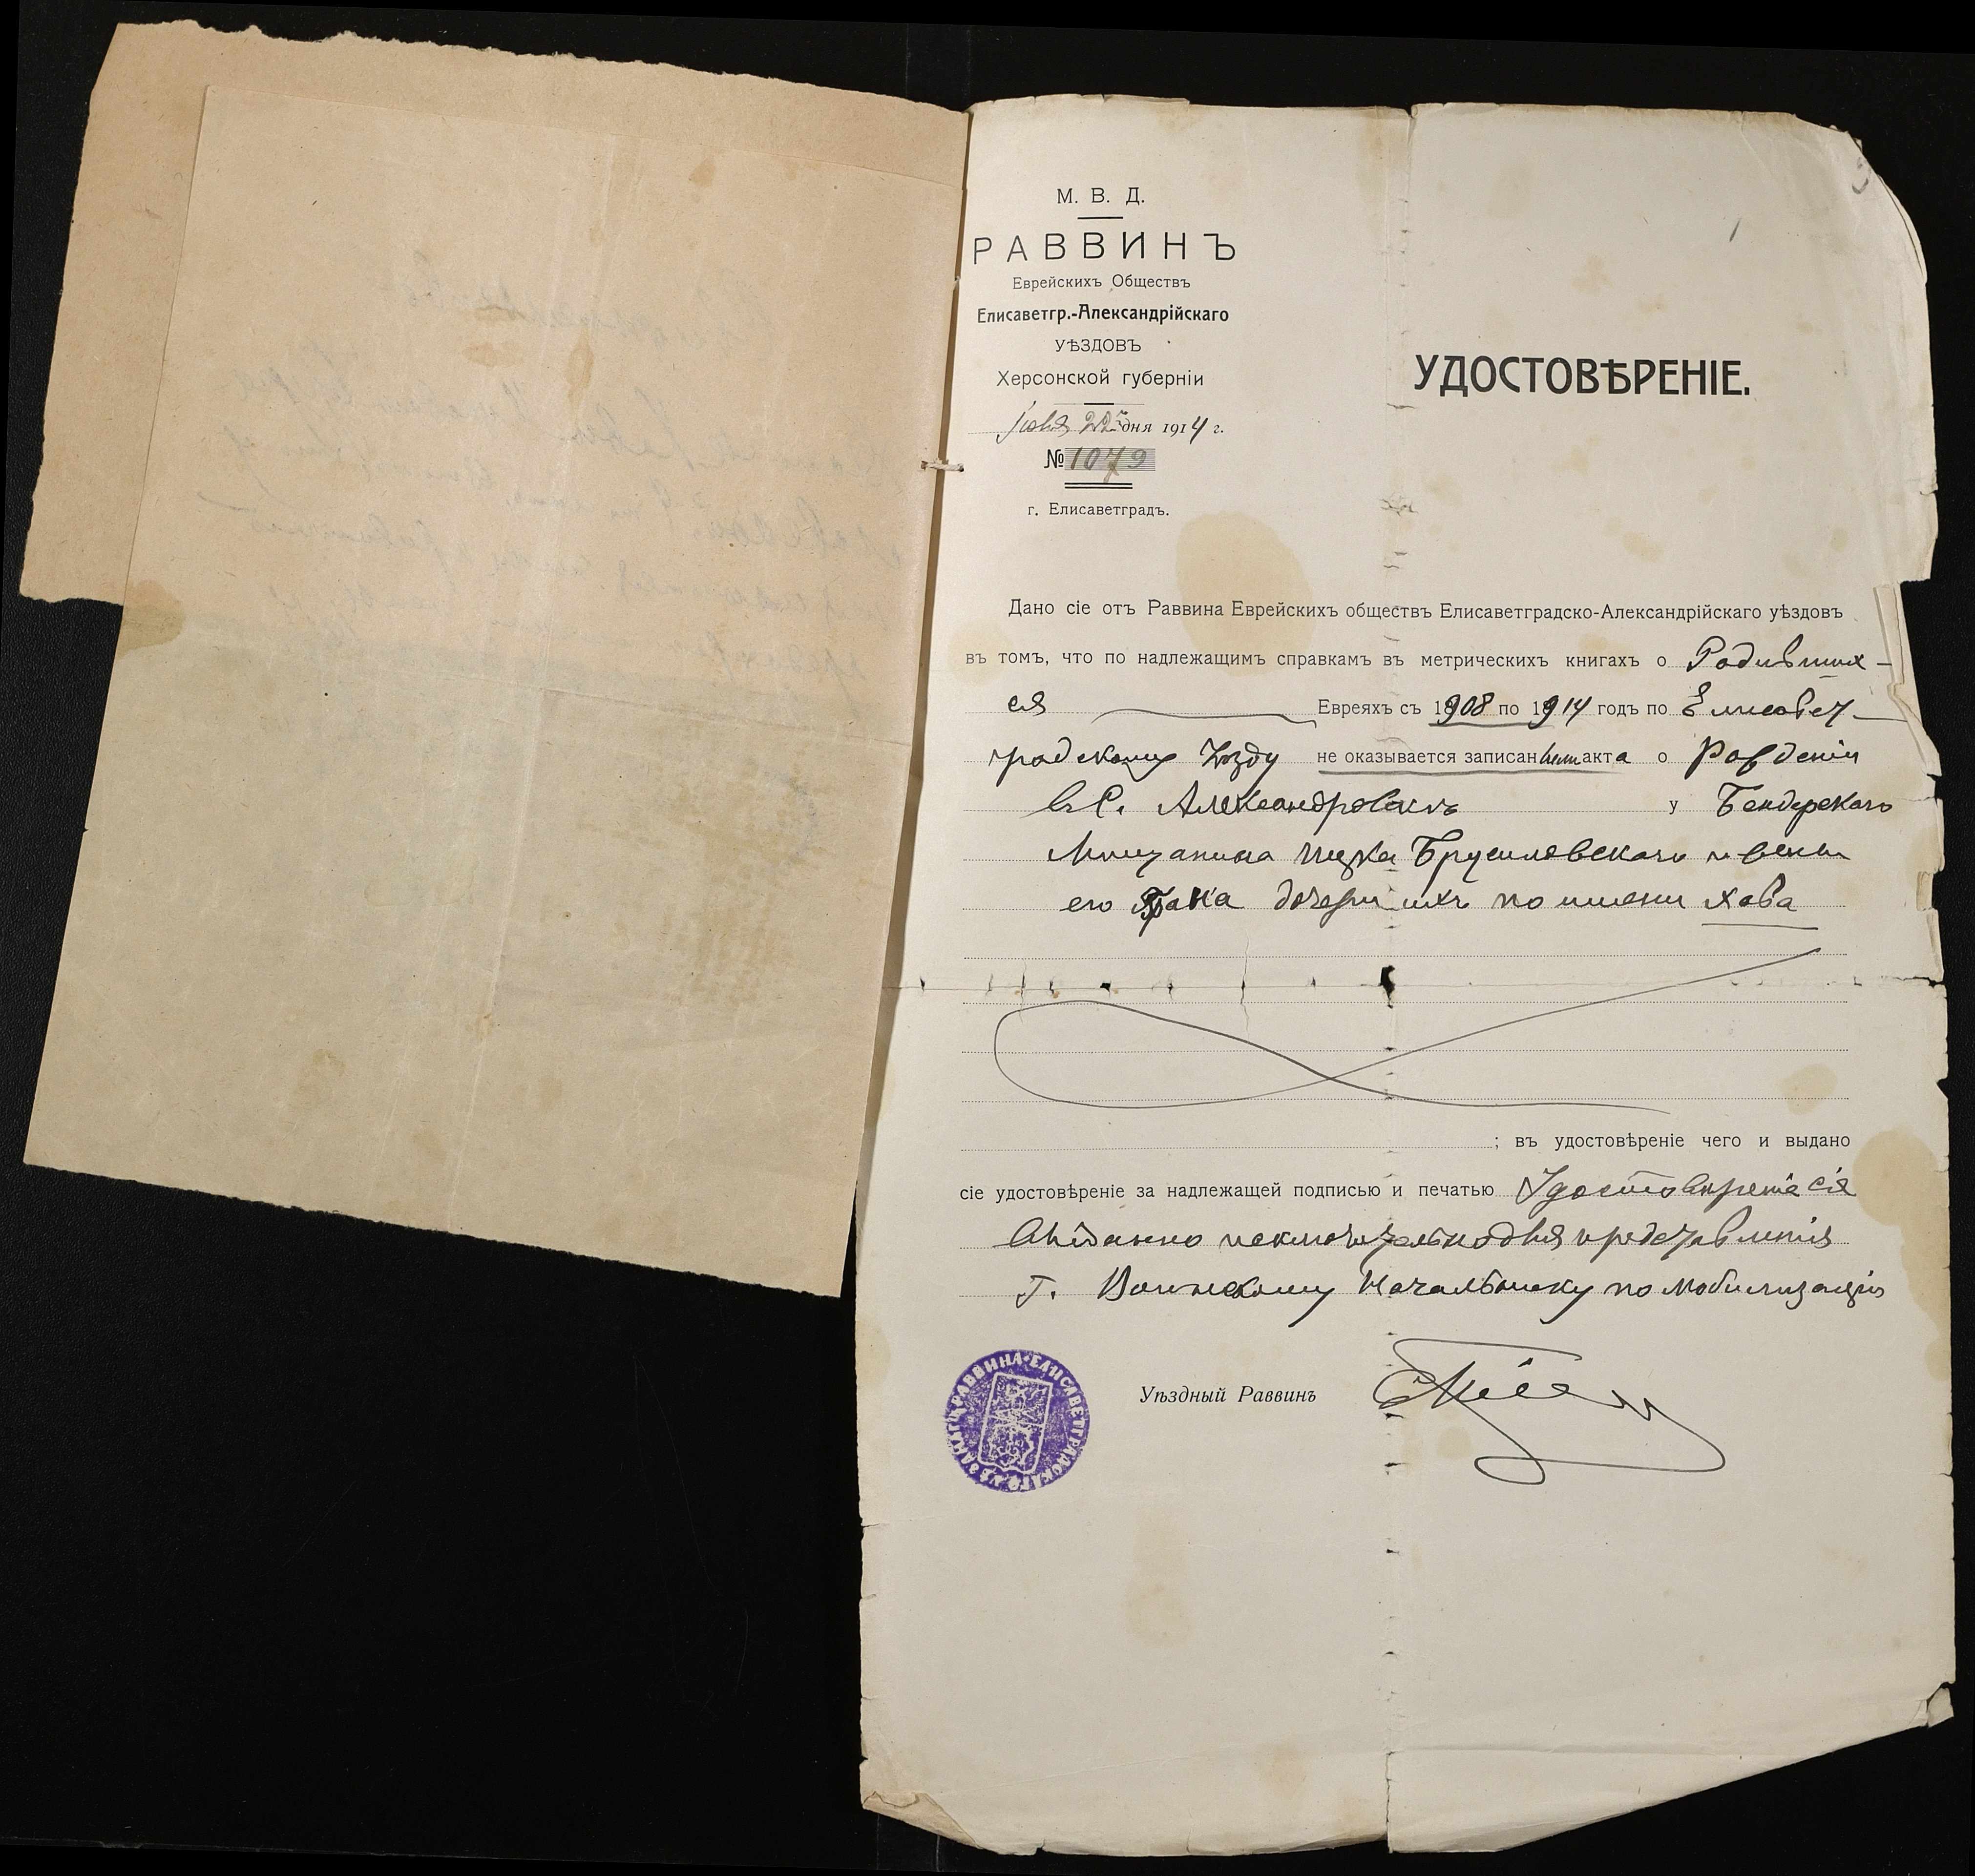 М. В. Д.
РАВВИНЪ
Еврейскихъ Обществъ
Елисаветгр.-Александрійскаго
УѢЗДОВЪ
Херсонской губерніи
дня 1914 г.
№ 1079
г. Елисаветградъ.
УДОСТОВѢРЕНІЕ.
Дано сіе отъ Раввина Еврейскихъ обществъ Елисаветградско-Александрійскаго уѣздовъ
въ томъ, что по надлежащимъ справкамъ въ метрическихъ книгахъ о Родивших-
ся Евреяхъ съ 1908 по 1914 годъ по Елисавет-
градскому Уѣзду не оказывается записаннымъ акта о Рожденіи
въ С. Александровкѣ у Бендерскаго
Мѣщанина Ицка Брусиловскаго и жены
его дочери ихъ по имени Хава
; въ удостовѣреніе чего и выдано
сіе удостовѣреніе за надлежащей подписью и печатью Удостовѣреніе сіе
выданно исключительно для представленія
Г. Воинскому Начальнику по мобилизаціи
Уѣздный Раввинъ
РАВВИНА • ЕЛИСАВЕТГРАДСКАГО